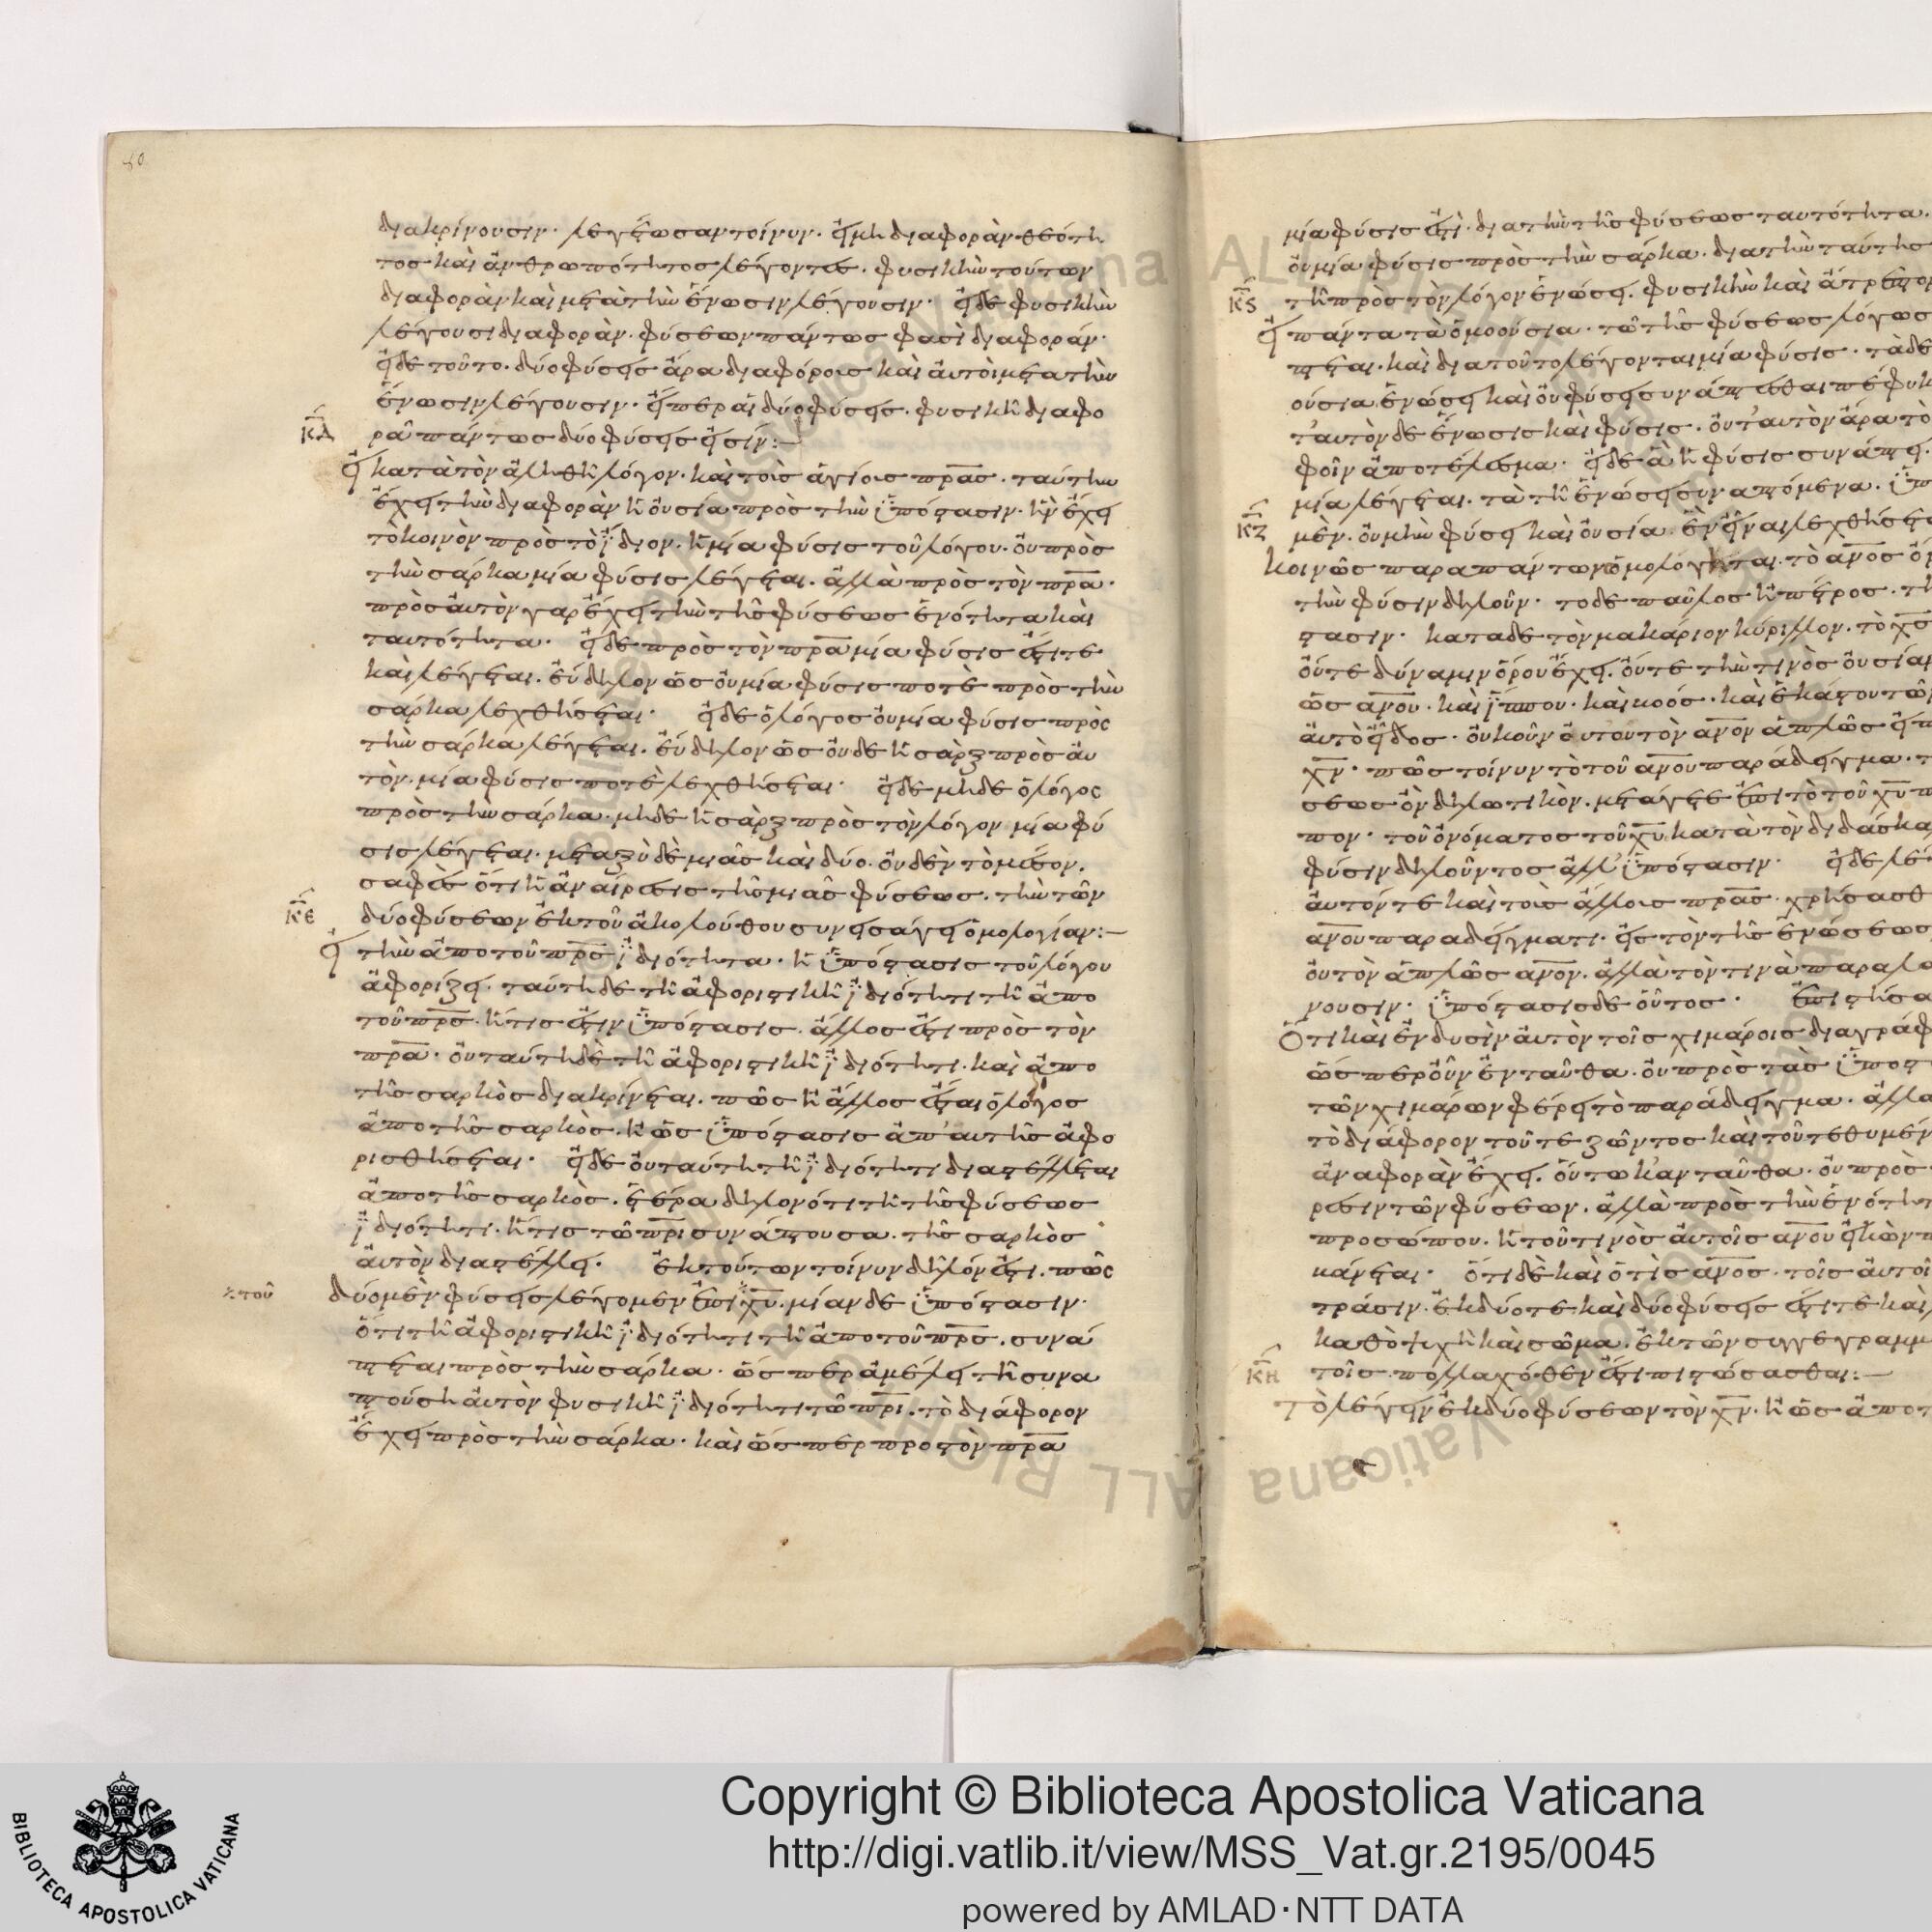 διακρίνουσιν. λεγέτωσαν τοίνυν. εἰ μὴ διαφορὰν θεότη
τος καὶ ἀνθρωπότητος λέγοντες. φυσικὴν τούτων
διαφορὰν καὶ μετὰ τὴν ἕνωσιν λέγουσιν. εἰ δὲ φυσικὴν
λέγουσι διαφορὰν. φύσεων πάντως φασὶ διαφοράν.
εἰ δὲ τοῦτο. δύο φύσεις ἄρα διαφόροις καὶ αὐτοὶ μετα τὴν
ἕνωσιν λέγουσιν. εἴπερ αἱ δύο φύσεις. φυσικῆ διαφο
κδ
ρᾶ πάντως δύο φύσεις εἰσίν:—
εἰ κατὰ τὸν ἀληθῆ λόγον. καὶ τοῖς ἁγίοις πρᾶς. ταύτην
ἔχει τὴν διαφορὰν ἡ οὐσία πρὸς τὴν ὑπόστασιν. ἣν ἔχει
τὸ κοινὸν πρὸς τὸ ἴδιον. ἡ μία φύσις τοῦ λόγου. οὐ πρὸς
τὴν σάρκα μία φύσις λέγεται. ἀλλὰ πρὸς τὸν πρα.
πρὸς αὐτὸν γαρ ἔχει τὴν τῆς φύσεως ἑνότητα καὶ
ταυτότητα. εἰ δὲ πρὸς τὸν πρα μία φύσις ἐστί τε
καὶ λέγεται. εὔδηλον ὡς οὐ μία φύσις ποτὲ πρὸς τὴν
σάρκα λεχθήσεται. εἰ δὲ ὁ λόγος οὐ μία φύσις πρὸς
τὴν σάρκα λέγεται. εὔδηλον ὡς οὐδὲ ἡ σὰρξ πρὸς αὐ
τὸν. μία φύσις ποτὲ λεχθήσεται. εἰ δὲ μηδὲ ὁ λόγος
πρὸς τὴν σάρκα. μηδὲ ἡ σὰρξ πρὸς τὸν λόγον μία φύ
σις λέγεται. μεταξὺ δὲ μιᾶς καὶ δύο. οὐδὲν τὸ μέσον.
σαφὲς ὅτι ἡ ἀναίρεσις τῆς μιᾶς φύσεως. τὴν τῶν
κε
δύο φύσεων ἐκ τοῦ ἀκολούθου συνεισάγει ὁμολογίαν:—
εἰ τὴν ἀπο τοῦ πρς ἰδιότητα. ἡ ὑπόστασις τοῦ λόγου
ἀφορίζει. ταύτη δὲ τῆ ἀφοριστικῆ ἰδιότητι τῆ ἀπο
τοῦ πρς. ἥτις ἐστὶν ὑπόστασις. ἄλλος ἐστι πρὸς τὸν
πρα. οὐ ταύτη δὲ τῆ ἀφοριστικῆ ἰδιότητι. καὶ ἀπο
τῆς σαρκὸς διακρίνεται. πῶς ἢ ἄλλος ἔσται ὁ λόγος
ἀπο τῆς σαρκὸς. ἢ ὡς ὑπόστασις ἀπ' αυτῆς ἀφο
ρισθήσεται. εἰ δὲ οὐ ταύτη τῆ ἰδιότητι διαστέλλεται
ἀπο τῆς σαρκὸς. ἑτέρα δηλονότι τῆ τῆς φύσεως
ἰδιότητι. ἥτις τῶ πρι συνάπτουσα. τῆς σαρκὸς
αὐτὸν διαστέλλει. ἐκ τούτων τοίνυν δῆλόν ἐστι. πῶς
τοῦ
δύο μὲν φύσεις λέγομεν ἐπὶ χυ. μίαν δὲ ὑπόστασιν.
ὅτι τῆ ἀφοριστικῆ ἰδιότητι τῆ ἀπο τοῦ πρς. συνά
πτεται πρὸς τὴν σάρκα. ὥσπερ ἀμέλει τῆ συνα
πτούση αὐτὸν φυσικῆ ἰδιότητι τῶ πρι. τὸ διάφορον
ἔχει πρὸς τὴν σάρκα. καὶ ὥσπερ προς τὸν πρα
μία φύσις ἐστὶ. δια τὴν τῆς φύσεως ταυτότητα.
οὐ μία φύσις πρὸς τὴν σάρκα. δια τὴν ταύτης
κς
τῆ πρὸς τὸν λόγον ἑνώσει. φυσικὴν καὶ ἄτρεπτο
εἰ πάντα τὰ ὁμοούσια. τῶ τῆς φύσεως λόγω σ
πτεται. καὶ δια τοῦτο λέγονται μία φύσις. τὰ δὲ
ούσια ἑνώσει καὶ οὐ φύσει συνάπτεσθαι πέφυκ
ταυτὸν δὲ ἕνωσις καὶ φύσις. οὐ ταυτὸν ἄρα τὸ
φοῖν ἀποτέλεσμα. εἰ δὲ ἃ ἡ φύσις συνάπτει.
μία λέγεται. τὰ τῆ ἑνώσει συναπτόμενα. ὑπ
κζ
μὲν. οὐ μὴν φύσει καὶ οὐσία. ἓν εἶναι λεχθήσετ
κοινῶς παρα πάντων ὁμολόγηται. τὸ ανος ὄν
τὴν φύσιν δηλοῦν. το δὲ παῦλος ἢ πέτρος. τὴ
στασιν. κατα δὲ τὸν μακάριον κύριλλον. τὸ χς
οὔτε δύναμιν ὅρου ἔχει. οὔτε τὴν τινὸς οὐσίαν
ὡς ανου. καὶ ἵππου. καὶ βοός. καὶ ἑκάστου τῶν
αὐτὸ εἶδος. οὐκοῦν ὁ αυτου τὸν ανον ἁπλῶς εἰπ
χν. πῶς τοίνυν τὸ τοῦ ανου παράδειγμα. τ
σεως ὂν δηλωτικὸν. μετάγετε ἐπὶ τὸ τοῦ χυ π
πον. τοῦ ὀνόματος τοῦ χυ κατὰ τὸν διδάσκα
φύσιν δηλοῦντος ἀλλ' ὑπόστασιν. εἰ δὲ λέ
αὐτόν τε καὶ τοῖς ἄλλοις πρας. χρήσασθ
ανου παραδείγματι. εἰς τὸν τῆς ἑνώσεως
οὐ τὸν ἁπλῶς ανον. ἀλλὰ τὸν τινὰ παραλα
νουσιν. ὑπόστασις δὲ οὗτος. ἐπιστήσα
Ὅτι καὶ ἐν δυσὶν αὐτὸν τοῖς χιμάροις διαγράφ
ὥσπερ οὖν ἐνταῦθα. οὐ πρὸς τὰς ὑποστ
τῶν χιμάρων φέρει τὸ παράδειγμα. ἀλλα
τὸ διάφορον τοῦ τε ζῶντος καὶ τοῦ τεθυμέν
ἀναφορὰν ἔχει. οὕτω κἀνταῦθα. οὐ πρὸς
ρεσιν τῶν φύσεων. ἀλλὰ πρὸς τὴν ἑνότητ
προσώπου. ἡ τοῦ τινὸς αὐτοῖς ανου εἰκὼν π
βάνεται. ὅτι δὲ καὶ ὅ τὶς ανος. τοῖς αὐτοῖ
τράσιν. ἐκ δύο τε καὶ δύο φύσεις ἐστί τε καὶ
καθὸ ψυχὴ καὶ σῶμα. ἐκ τῶν συγγεγραμμ
κη
τοῖς. πολλαχόθεν ἔστι πιστώσασθαι:—
Τὸ λέγειν ἐκ δύο φύσεων τὸν χν. ἢ ὡς ἀποτ
Copyright © Biblioteca Apostolica Vaticana
http://digi.vatlib.it/view/MSS_Vat.gr.2195/0045
powered by AMLAD·NTT DATA
BIBLIOTECA APOSTOLICA VATICANA